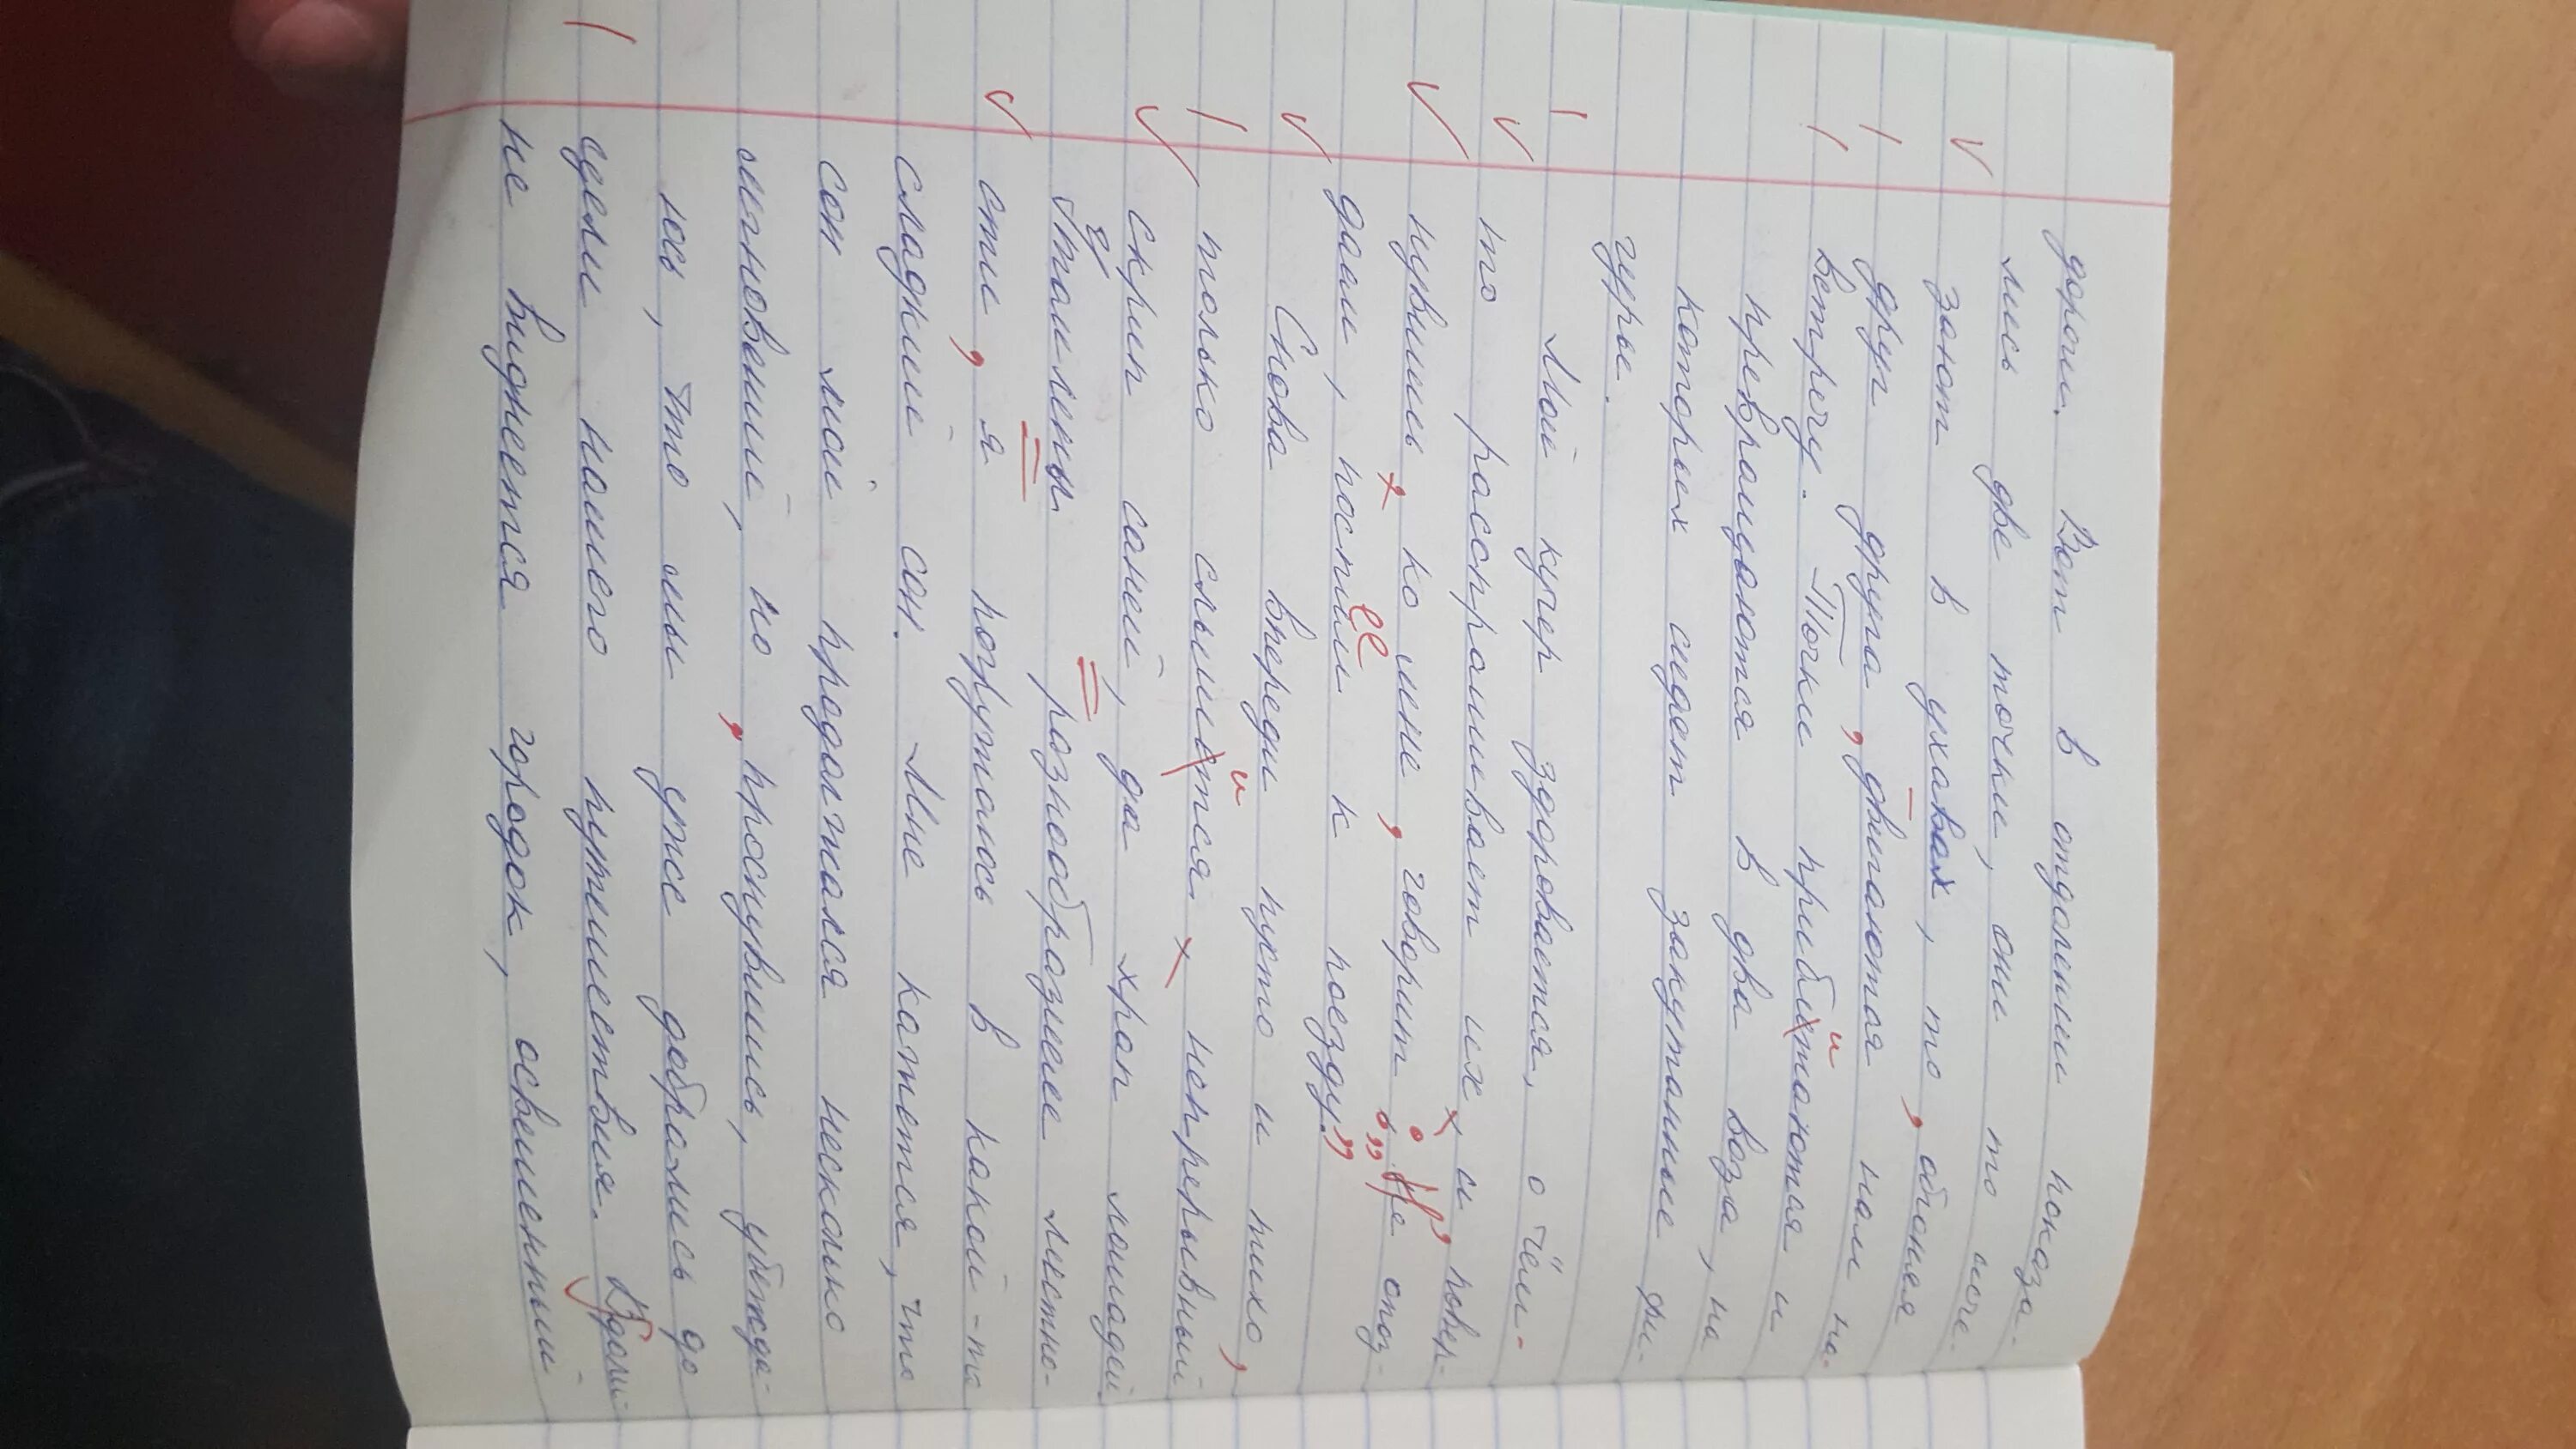 дороги. Вот в отдалении показа-
лись две точки, они то исче-
зают в ухавах, то, обгоняя
друг друга, двигаются нам на-
встречу. Точки прибитаются и
превращаются в два воза, на
которых сидят закутанные фи-
гурье.
Мой кучер здоровается, о чём-
то расспрашивает их, и повер-
нувшись, ко мне, говорит: „Не опоз-
даем, поспеем к поезду."
Снова впереди пусто и тихо,
только слышится, непрерывный
скрип саней, да храп лошадей.
Утомлены разнообразнее местно-
сти, я погружаюсь в какой-то
сладкий сон. Мне кажется, что
сон мой продолжался несколько
мгновений, но, проснувшись, убежда-
юсь, что мы уже добрались до
цели нашего путешествия. Вдали
не виднеется городок, освещенный